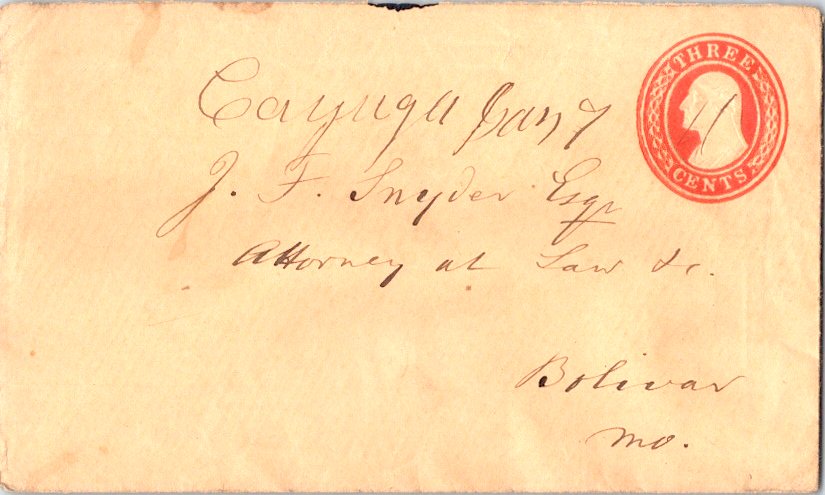 THREE
CENTS.
Cayuga Jany 7
J. F. Snyder Esqr
Attorney at Law &c.
Bolivar
Mo.